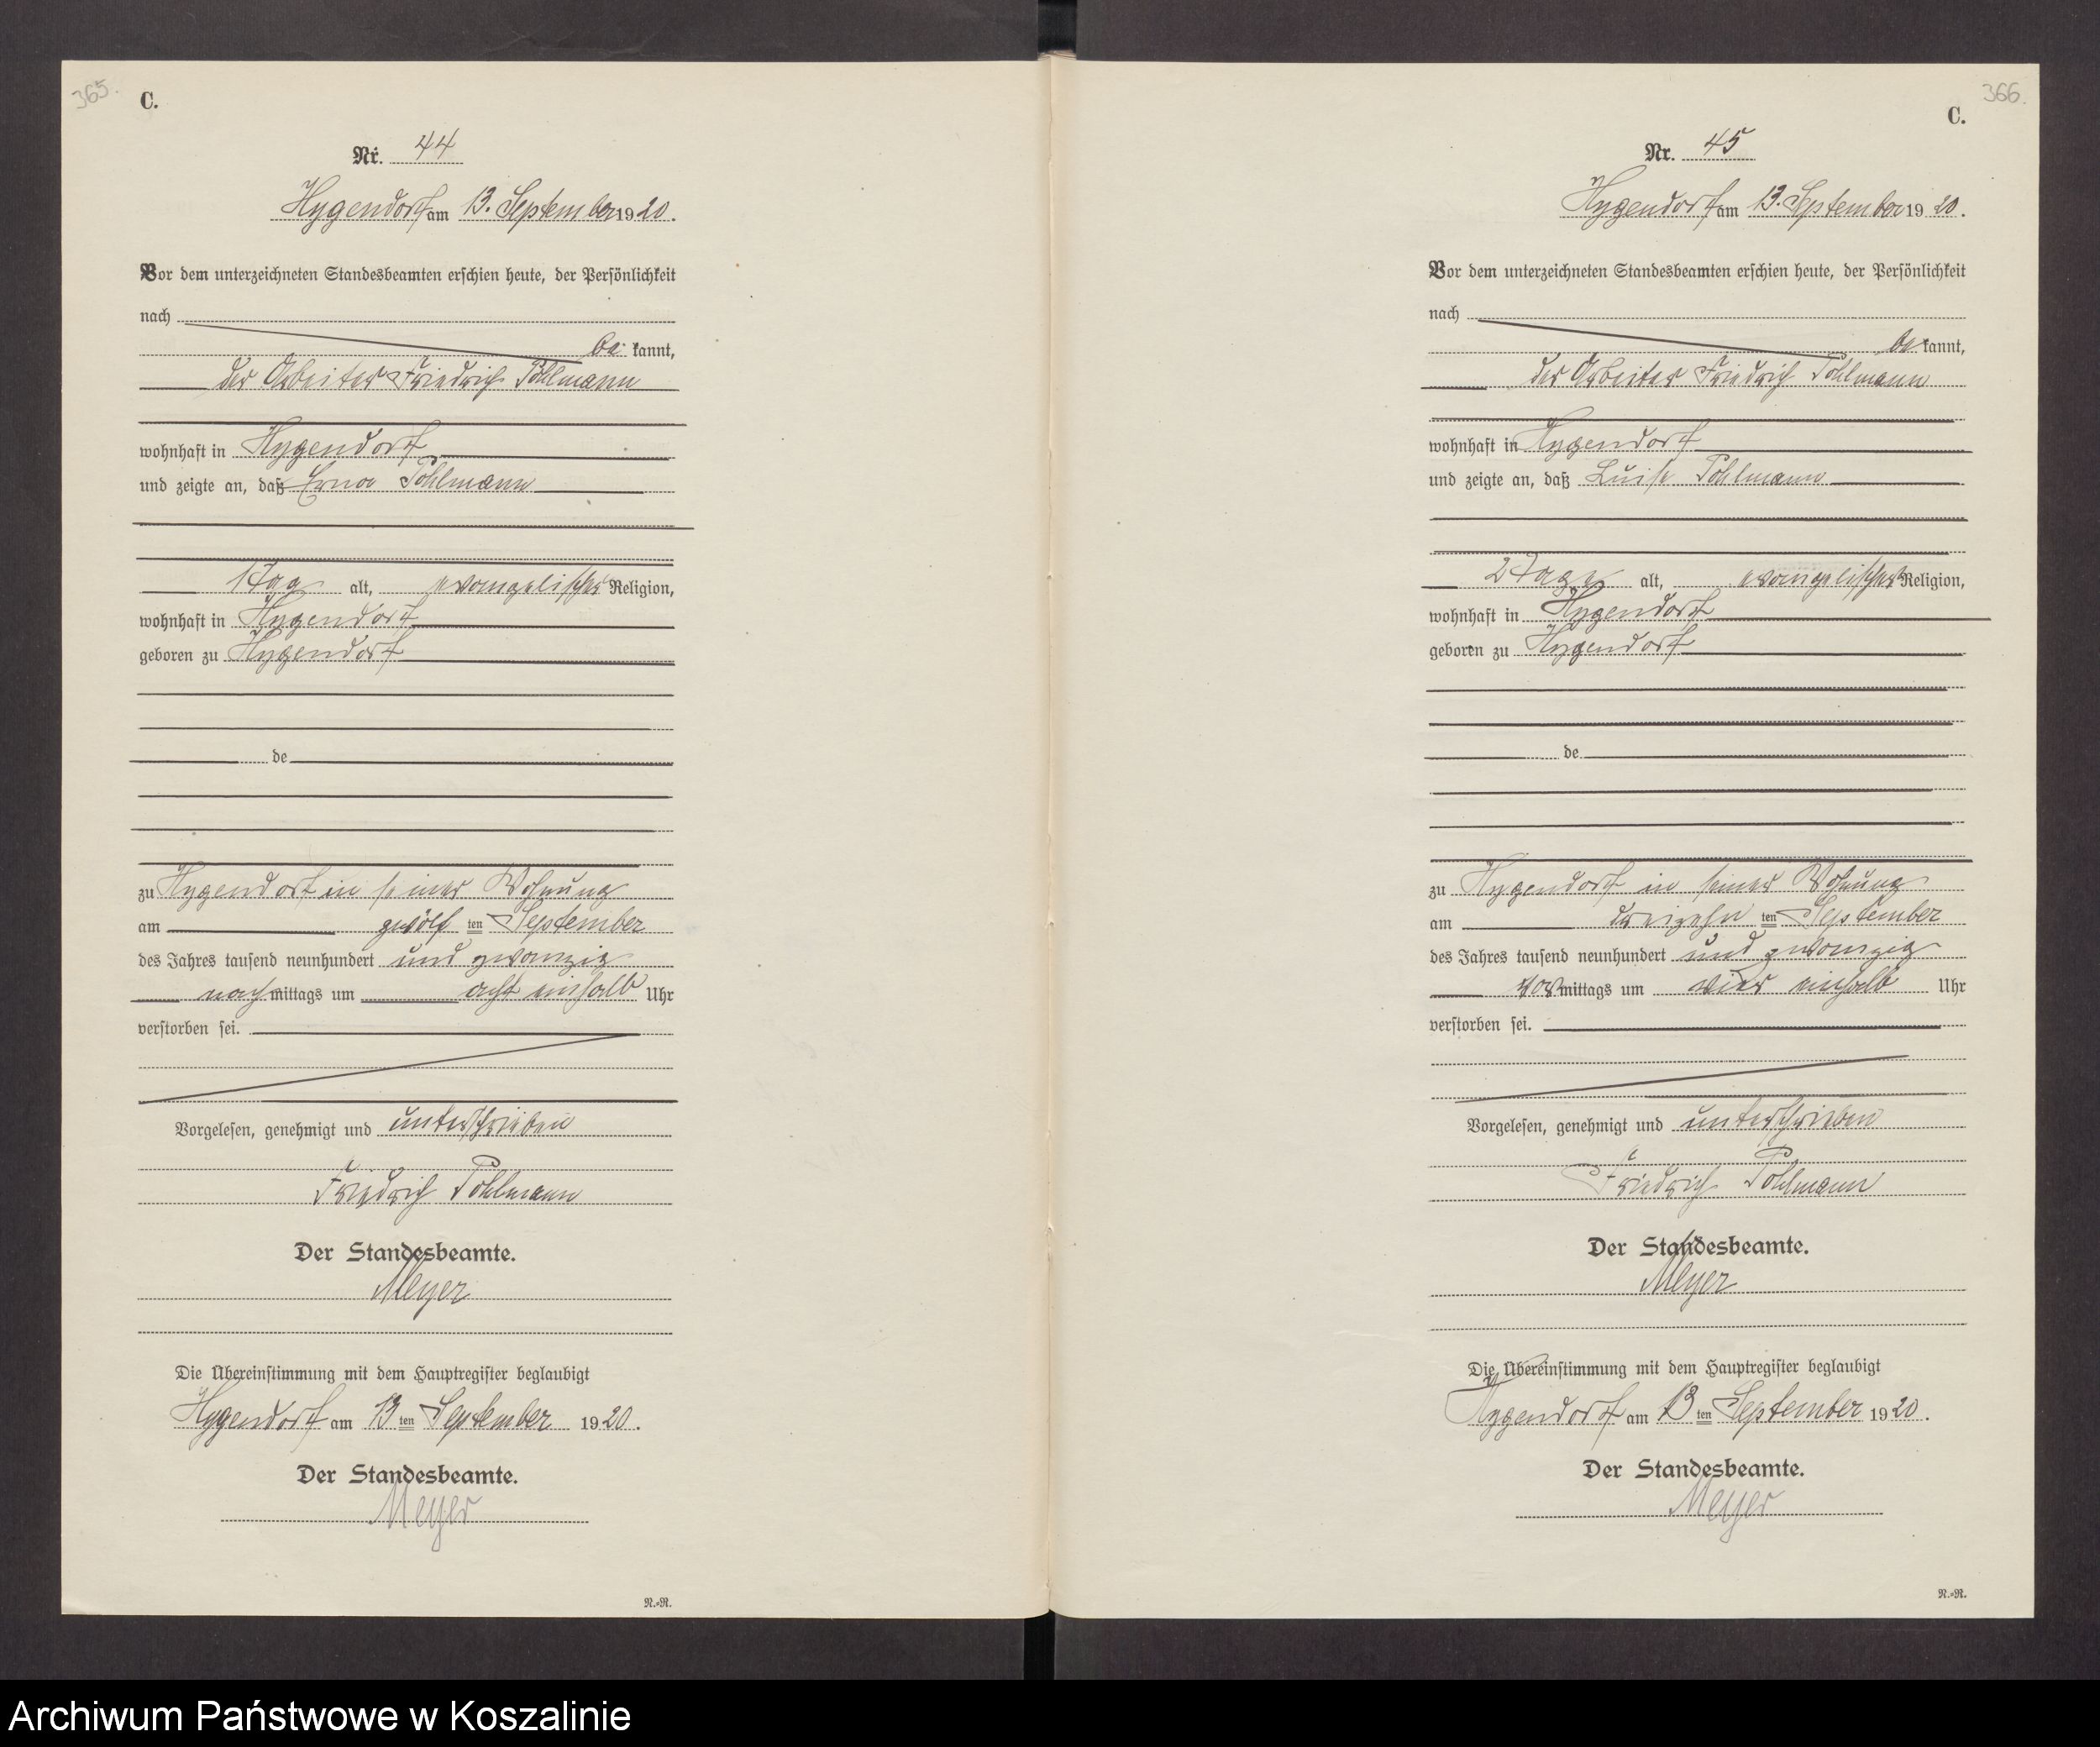 365.
C.
Nr. 44
Hygendorf am 13. September 1920.
Vor dem unterzeichneten Standesbeamten erschien heute, der Persönlichkeit
nach
be kannt,
der Arbeiter Friedrich Pohlmann
wohnhaft in Hygendorf
und zeigte an, daß Erna Pohlmann
1 Tag alt, evangelischer Religion,
wohnhaft in Hygendorf
geboren zu Hygendorf
de
zu Hygendorf in seiner Wohnung
am zwölf ten September
des Jahres tausend neunhundert und zwanzig
nach mittags um acht einhalb Uhr
verstorben sei.
Vorgelesen, genehmigt und unterschrieben
Friedrich Pohlmann
Der Standesbeamte.
Meyer
Die Übereinstimmung mit dem Hauptregister beglaubigt
Hygendorf am 13 ten September 1920.
Der Standesbeamte.
Meyer
N.-R.
366.
C.
Nr. 45
Hygendorf am 13. September 1920.
Vor dem unterzeichneten Standesbeamten erschien heute, der Persönlichkeit
nach
be kannt,
der Arbeiter Friedrich Pohlmann
wohnhaft in Hygendorf
und zeigte an, daß Luise Pohlmann
2 Tage alt, evangelischer Religion,
wohnhaft in Hygendorf
geboren zu Hygendorf
de
zu Hygendorf in seiner Wohnung
am dreizehn ten September
des Jahres tausend neunhundert und zwanzig
vor mittags um vier einhalb Uhr
verstorben sei.
Vorgelesen, genehmigt und unterschrieben
Friedrich Pohlmann
Der Standesbeamte.
Meyer
Die Übereinstimmung mit dem Hauptregister beglaubigt
Hygendorf am 13 ten September 1920.
Der Standesbeamte.
Meyer
N.-R.
Archiwum Państwowe w Koszalinie